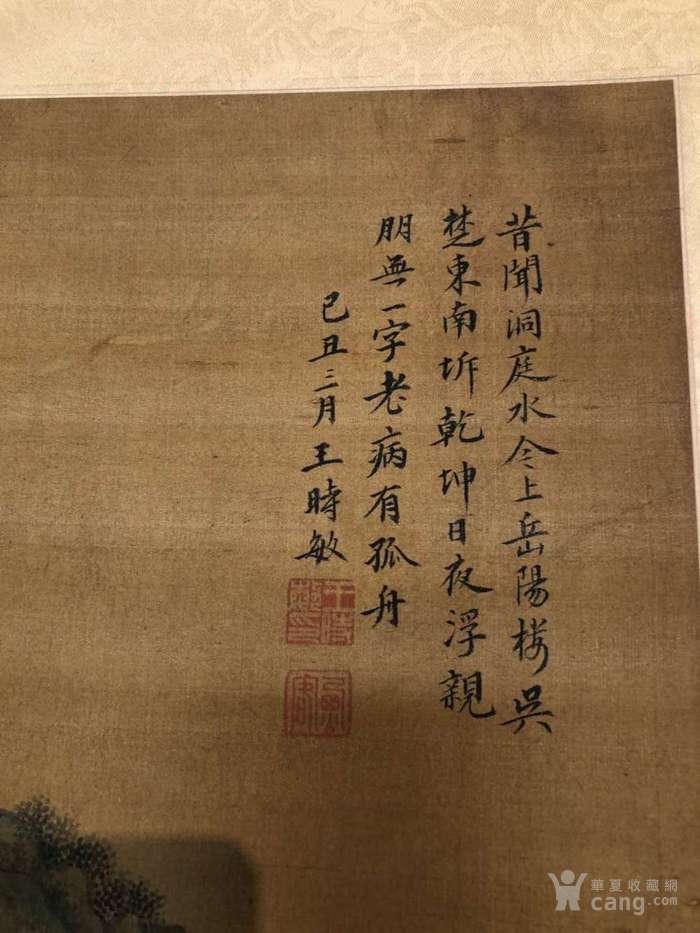 昔聞洞庭水今上岳陽楼吳
楚東南坼乾坤日夜浮親
朋無一字老病有孤舟
己丑三月王時敏
華夏收藏網
cang.com